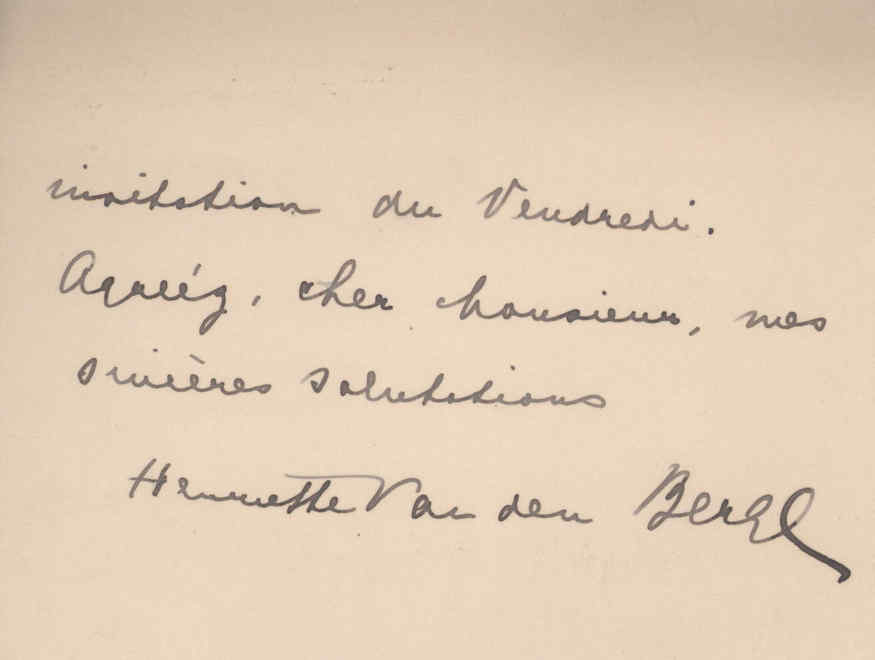 invitation du Vendredi.
Agréez, cher Monsieur, mes
sincères salutations
Henriette Van den Bergh